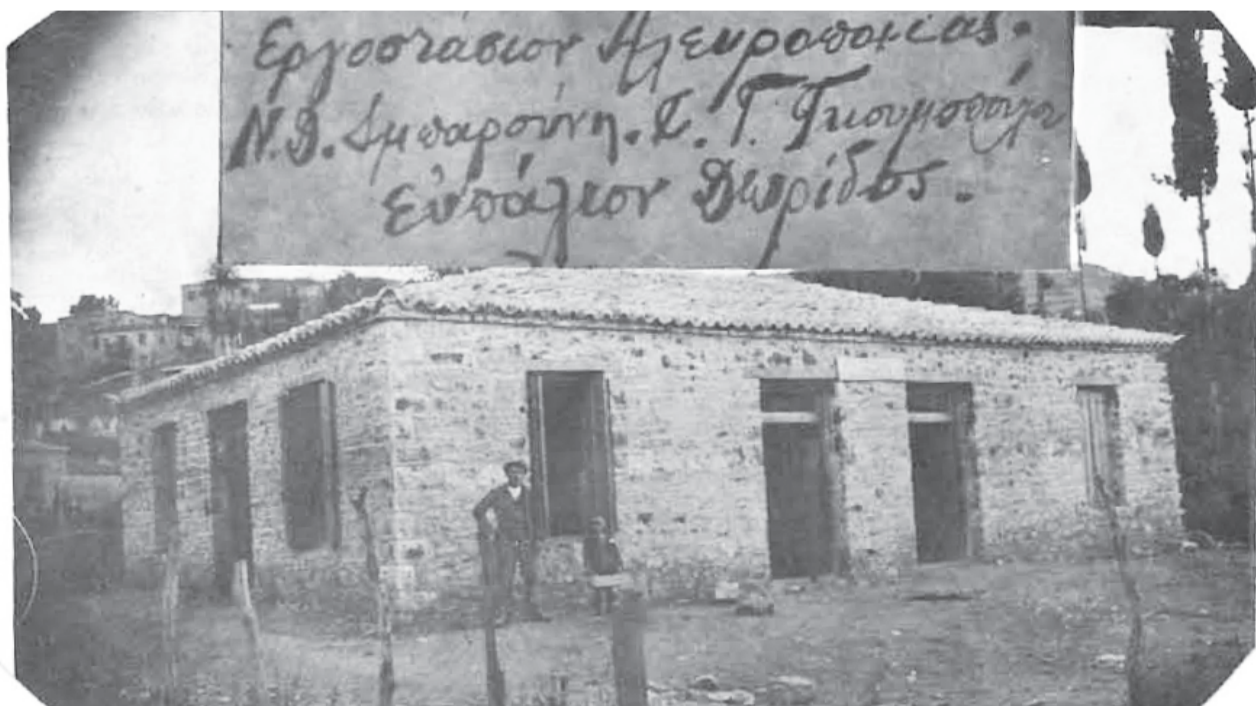 Εργοστάσιον Αλευροποιίας.
Ν.Δ. Σμπαρούνη. Γ. Γκιουμοπούλου
Εὐπάλιον Δωρίδος.